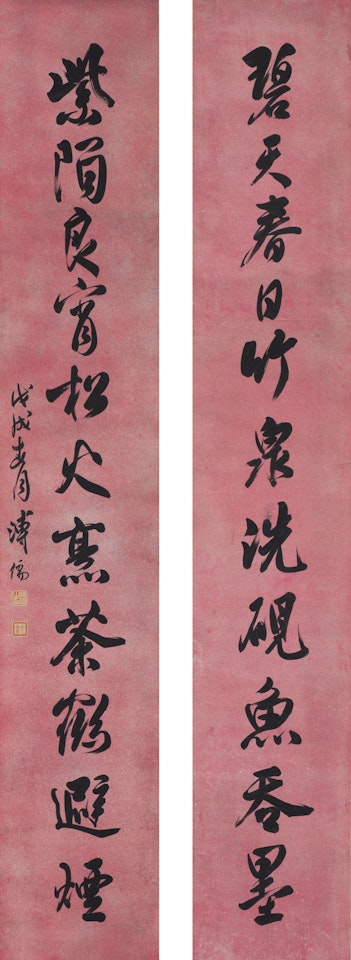 碧天春日竹泉洗硯魚吞墨
紫陌良宵松火熹茶鶴避煙
戊戌春月溥儒